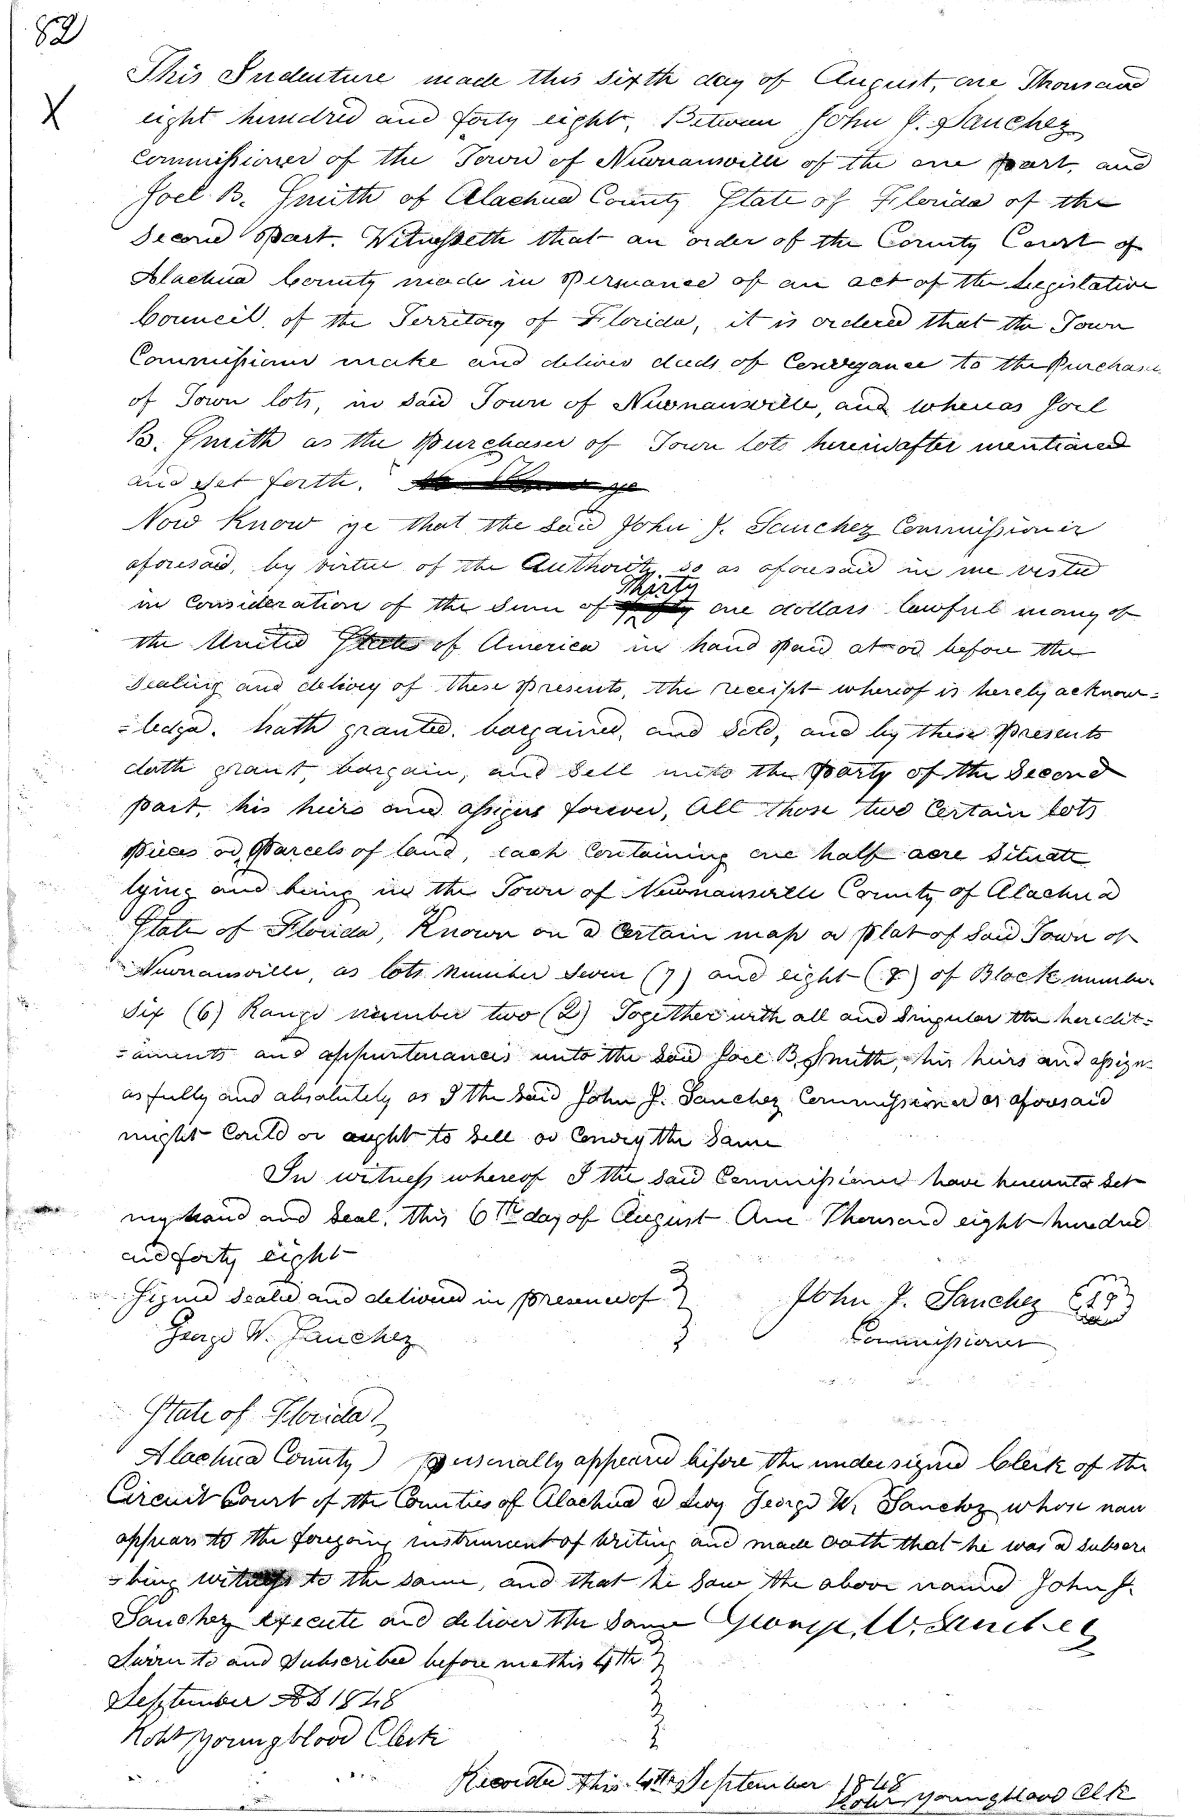 82
X
This Indenture made this sixth day of August, one Thousand
eight hundred and forty eight, Between John J. Sanchez
Commissioner of the Town of Newnansville of the one part, and
Joel B. Smith of Alachua County State of Florida of the
Second part. Witnesseth that an order of the County Court of
Alachua County made in persuance of an act of the Legislative
Council of the Territory of Florida, it is ordered that the Town
Commissioner make and deliver deeds of Conveyance to the Purchaser
of Town lots, in said Town of Newnansville, and whereas Joel
B. Smith as the purchaser of Town lots hereinafter mentioned
and set forth.
Now Know ye that the said John J. Sanchez Commissioner
aforesaid, by virtue of the Authority so as aforesaid in me vested
in consideration of the sum of Thirty one dollars lawful money of
the United States of America in hand paid at or before the
sealing and delivery of these presents, the receipt whereof is hereby acknow=
=ledgd. hath granted, bargained, and sold, and by these presents
doth grant, bargain, and sell unto the party of the Second
part, his heirs and assigns forever, All those two Certain lots
pieces or parcels of land, each Containing one half acre situate
lying and being in the Town of Newnansville County of Alachua
State of Florida, Known on a certain map or plat of said Town of
Newnansville, as lots number seven (7) and eight (8) of Block number
six (6) Range number two (2) Together with all and singular the heredit=
=aments and appurtenances unto the said Joel B. Smith, his heirs and assigns
as fully and absolutely as I the said John J. Sanchez Commissioner as aforesaid
might could or ought to sell or convey the same
In witness whereof I the said Commissioner have hereunto set
my hand and seal, this 6th day of August One Thousand eight hundred
and forty eight
Signed sealed and delivered in presence of
John J. Sanchez LS
George W. Sanchez
Commissioner
State of Florida
Alachua County ) personally appeared before the undersigned Clerk of the
Circuit Court of the Counties of Alachua & Levy George W. Sanchez whose nam
appears to the foregoing instrument of writing and made oath that he was a subscri
=bing witness to the same, and that he saw the above named John J.
Sanchez execute and deliver the same George W. Sanchez
Sworn to and subscribed before me this 4th
September AD 1848
Robt Youngblood Clerk
Recorded this 4th September 1848
Robt Youngblood Clk